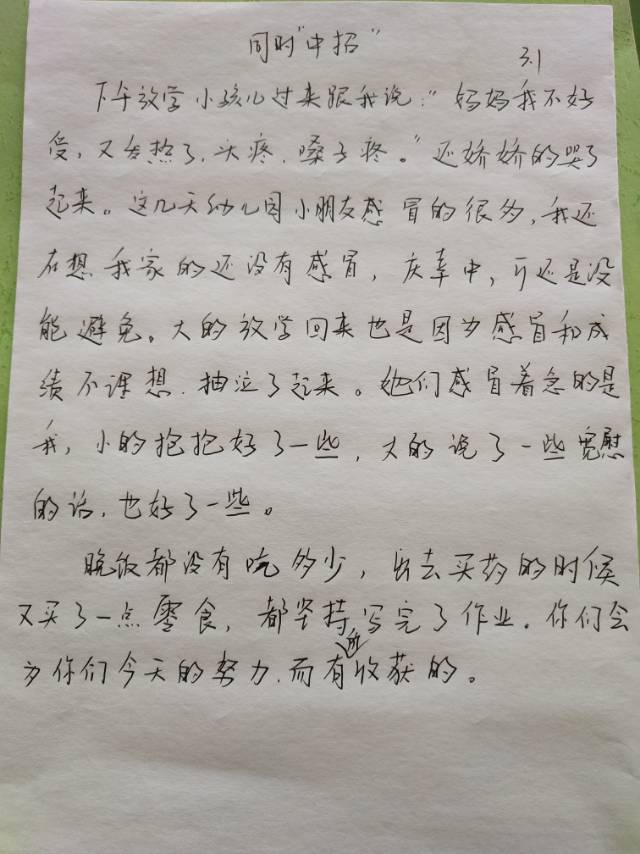 同时"中招"
3.1
下午放学小孩儿过来跟我说："妈妈我不好
受，又发热了、头疼、嗓子疼。"还娇娇的哭了
起来。这几天幼儿园小朋友感冒的很多，我还
在想我家的还没有感冒，庆幸中，可还是没
能避免。大的放学回来也是因为感冒和成
绩不理想、抽泣了起来。她们感冒着急的是
我，小的抱抱好了一些，大的说了一些宽慰
的话，也好了一些。
晚饭都没有吃多少，出去买药的时候
又买了一点零食，都坚持写完了作业。你们会
为你们今天的努力、而有所收获的。